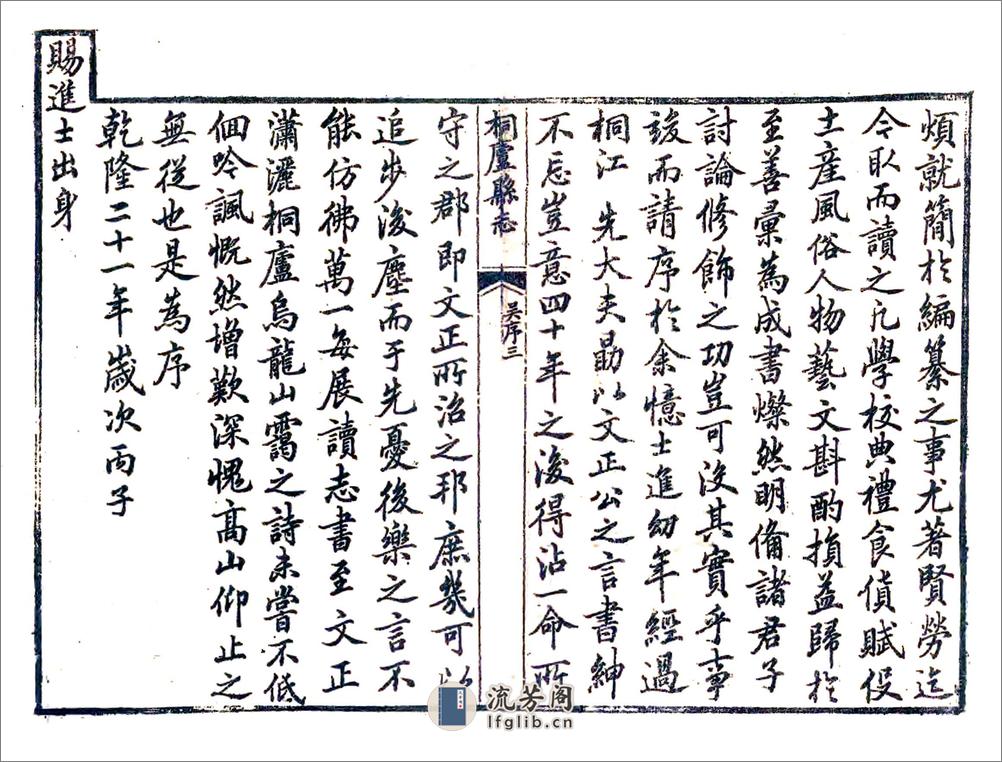 煩就簡於編纂之事尤著賢勞迄
今取而讀之凡學校典禮食貨賦役
土產風俗人物藝文斟酌損益歸於
至善彙為成書燦然明備諸君子
討論修飾之功豈可沒其實乎事
竣而請序於余憶士進幼年經過
桐江 先大夫勗以文正公之言書紳
不忘豈意四十年之後得沾一命所
桐廬縣志
吳序三
守之郡即文正所治之邦庶幾可以
追步後塵而于先憂後樂之言不
能仿彿萬一每展讀志書至文正
瀟灑桐廬烏龍山靄之詩未嘗不低
佪吟諷慨然增歎深愧高山仰止之
無從也是為序
乾隆二十一年歲次丙子
賜進士出身
流芳阁
lfglib.cn